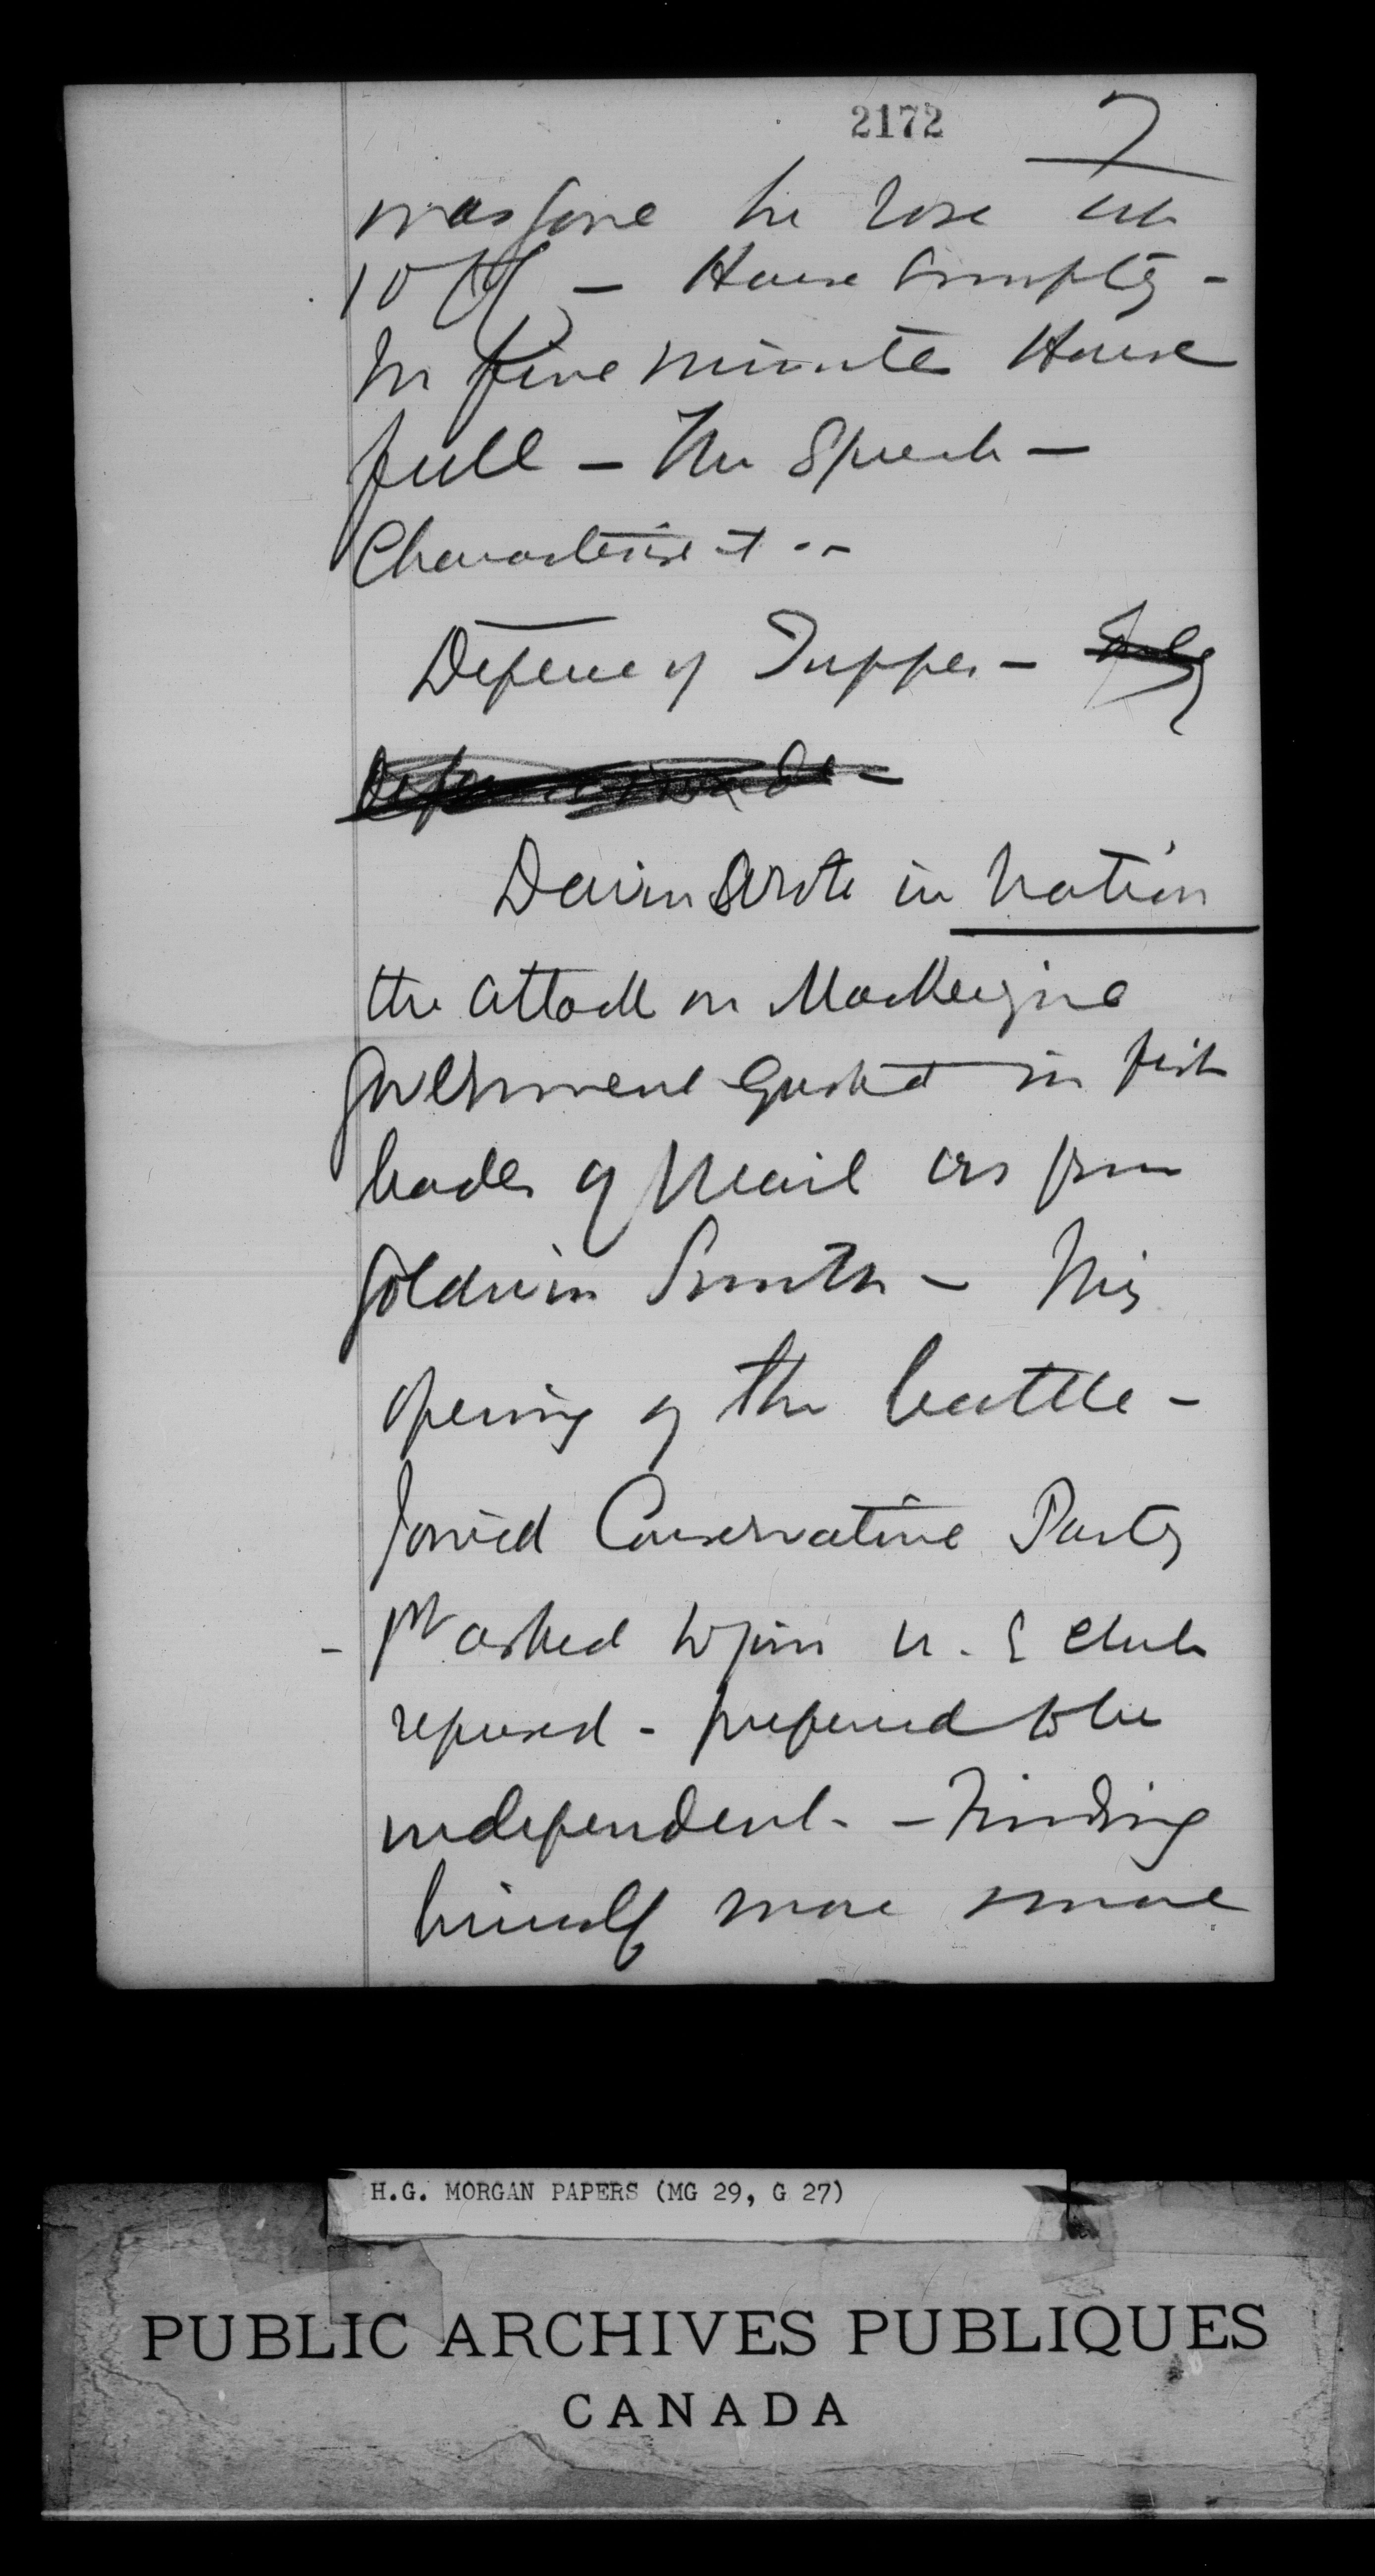 2172 7
was gone he rose at
10 — House empty -
In five minutes House
full — The Speech —
Characterise it --
Defence of Tupper — Only
Defence made -
Davin wrote in Nation
the attack on Mackenzie
Government quoted in first
leader of Mail as from
Goldwin Smith - This
opening of the battle -
Joined Conservative Party
- 1st asked to join U. E Club
refused - preferred to be
independent. - Finding
himself more & more
H.G. MORGAN PAPERS (MG 29, G 27)
PUBLIC ARCHIVES PUBLIQUES
CANADA